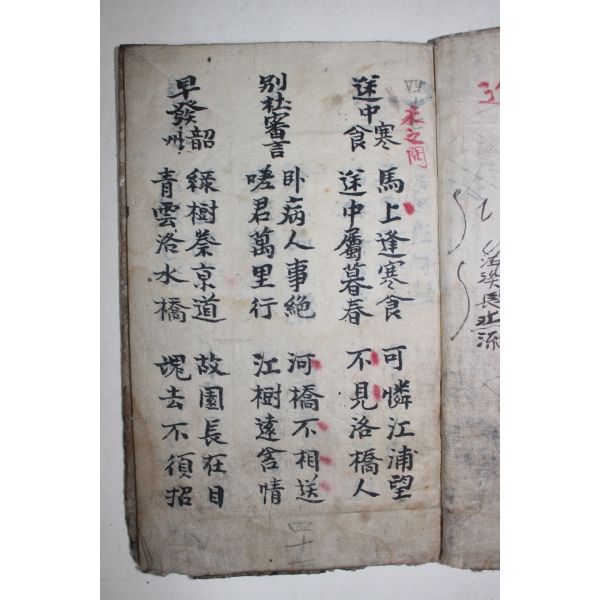 宋之問
途中寒食
馬上逢寒食 可憐江浦望
途中屬暮春 不見洛橋人
別社審言
卧病人事絶 河橋不相送
嗟君萬里行 江樹遠含情
早發韶州
綠樹秦京道 故園長在目
青雲洛水橋 魂去不須招
四十